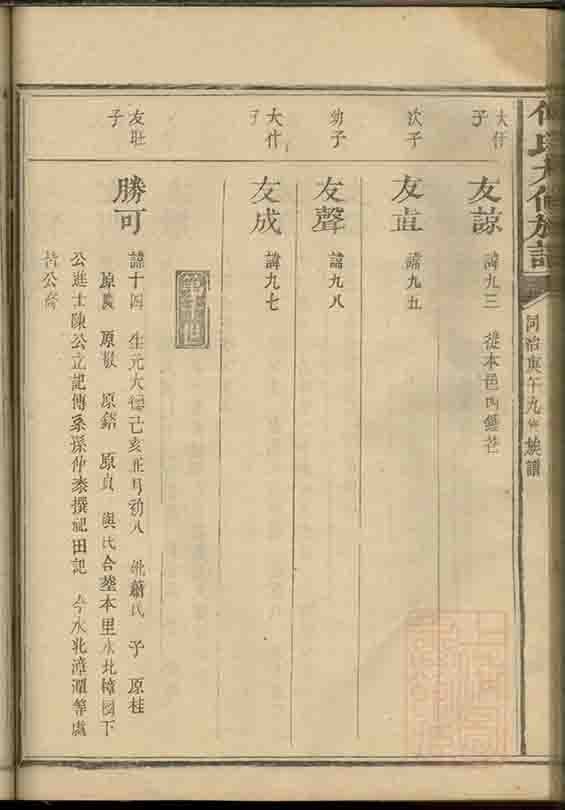 氏大修族譜
同治庚午九修族譜
大什子
友諒
諱九三 從本邑西
次子
友直
諱九五
幼子
友聲
諱九八
大什子
友成
諱九七
第十世
友壯子
勝可
諱十四 生元大德己亥正月初八 妣蕭氏 子 原桂
原晟 原 原鎔 原貞 與氏合塟本里水北樟園下
公進士陳公立記傳系孫仲 撰祀田記 今水北漳潭等處
皆公裔